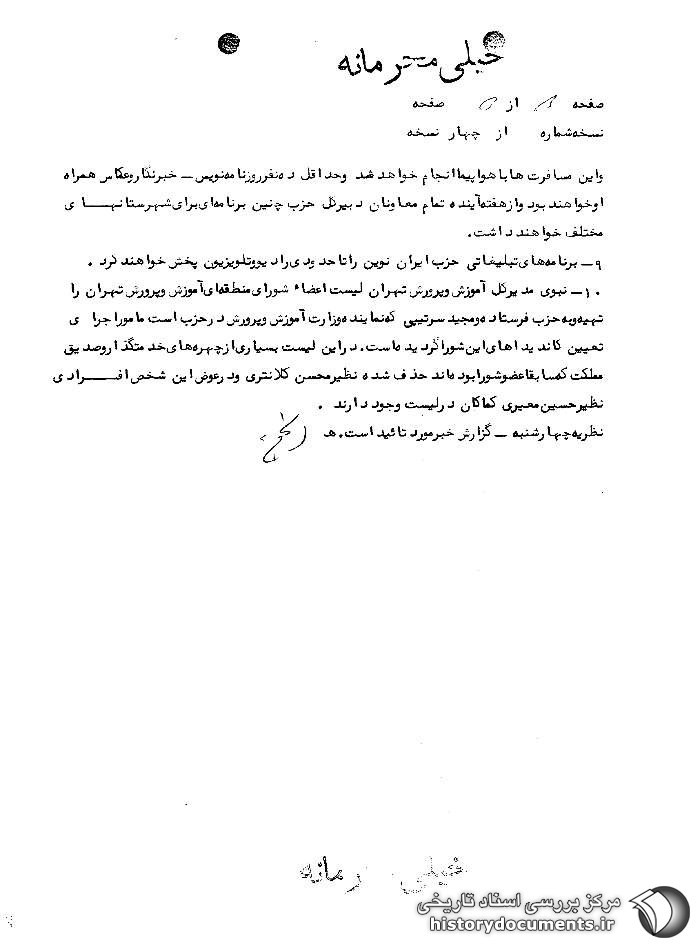 خیلی محرمانه
صفحه از صفحه
نسخه شماره از چهار نسخه
واین مسافرت ها با هواپیما انجام خواهد شد وحداقل ده نفر روزنامه نویس – خبرنگار وعکاس همراه
او خواهند بود واز هفته آینده تمام معاونان دبیرکل حزب چنین برنامه ای برای شهرستانهای
مختلف خواهند داشت.
۹ – برنامه های تبلیغاتی حزب ایران نوین را تا حدودی رادیو وتلویزیون پخش خواهند کرد .
۱۰ – نبوی مدیرکل آموزش وپرورش تهران لیست اعضاء شورای منطقه ای آموزش وپرورش تهران را
تهیه وبه حزب فرستاده ومجید سرتیپی که نماینده وزارت آموزش وپرورش در حزب است مامور اجرای
تعیین کاندیداهای این شورا گردیده است. در این لیست بسیاری از چهره های خدمتگذار وصدیق
مملکت که سابقا عضو شورا بوده اند حذف شده نظیر محسن کلانتری ودر عوض این شخص افرادی
نظیر حسین معیری کماکان در لیست وجود دارند .
نظریه چهارشنبه – گزارش خبر مورد تائید است. هـ
خیلی رمانه
مرکز بررسی اسناد تاریخی
historydocuments.ir